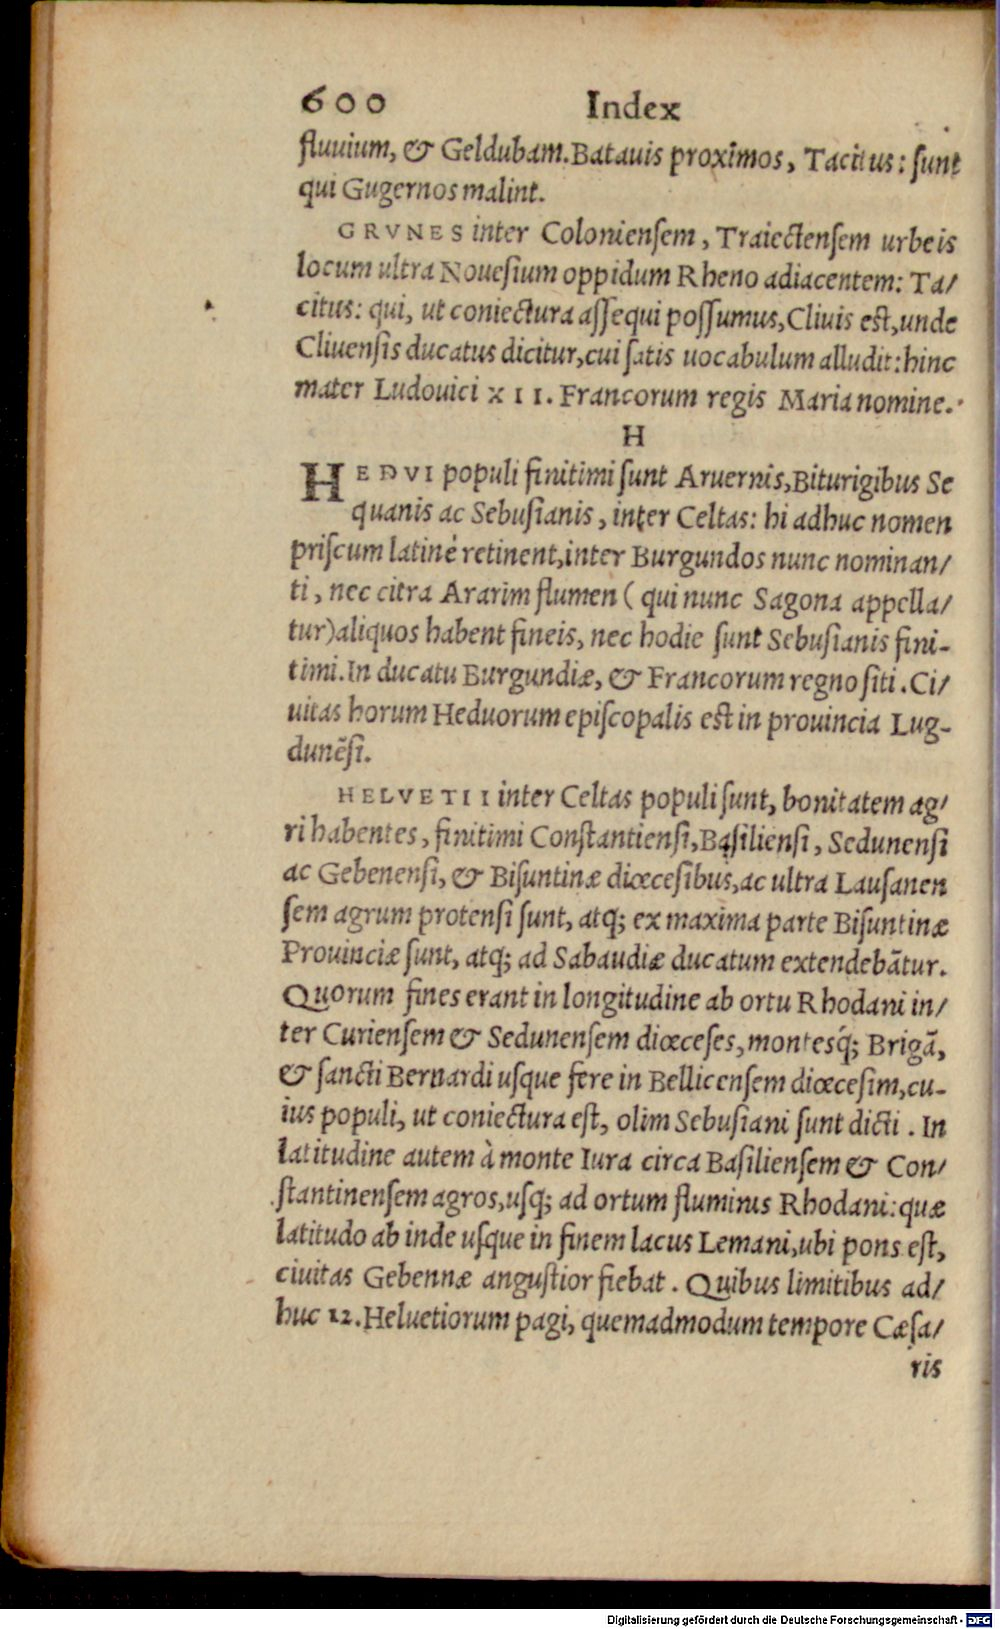 600 Index
fluuium, & Geldubam. Batauis proximos, Tacitus: sunt
qui Gugernos malint.
GRVNES inter Coloniensem, Traiectensem urbeis
locum ultra Nouesium oppidum Rheno adiacentem: Ta/
citus: qui, ut coniectura assequi possumus, Cliuis est, unde
Cliuensis ducatus dicitur, cui satis uocabulum alludit: hinc
mater Ludouici XII. Francorum regis Maria nomine.
H
HEDVI populi finitimi sunt Aruernis, Biturigibus Se
quanis ac Sebusianis, inter Celtas: hi adhuc nomen
priscum latinè retinent, inter Burgundos nunc nominan/
ti, nec citra Ararim flumen (qui nunc Sagona appella/
tur) aliquos habent fineis, nec hodie sunt Sebusianis fini-
timi. In ducatu Burgundiæ, & Francorum regno siti. Ci/
uitas horum Heduorum episcopalis est in prouincia Lug-
dunēsi.
HELVETII inter Celtas populi sunt, bonitatem ag/
ri habentes, finitimi Constantiensi, Basiliensi, Sedunensi
ac Gebenensi, & Bisuntinæ diœcesibus, ac ultra Lausanen
sem agrum protensi sunt, atq; ex maxima parte Bisuntinæ
Prouinciæ sunt, atq; ad Sabaudiæ ducatum extendebātur.
Quorum fines erant in longitudine ab ortu Rhodani in/
ter Curiensem & Sedunensem diœceses, montesq́; Brigā,
& sancti Bernardi usque fere in Bellicensem diœcesim, cu-
ius populi, ut coniectura est, olim Sebusiani sunt dicti. In
latitudine autem à monte Iura circa Basiliensem & Con/
stantinensem agros, usq; ad ortum fluminis Rhodani: quæ
latitudo ab inde usque in finem lacus Lemani, ubi pons est,
ciuitas Gebennæ angustior fiebat. Quibus limitibus ad/
huc 12. Heluetiorum pagi, quemadmodum tempore Cæsa/
ris
Digitalisierung gefördert durch die Deutsche Forschungsgemeinschaft - DFG